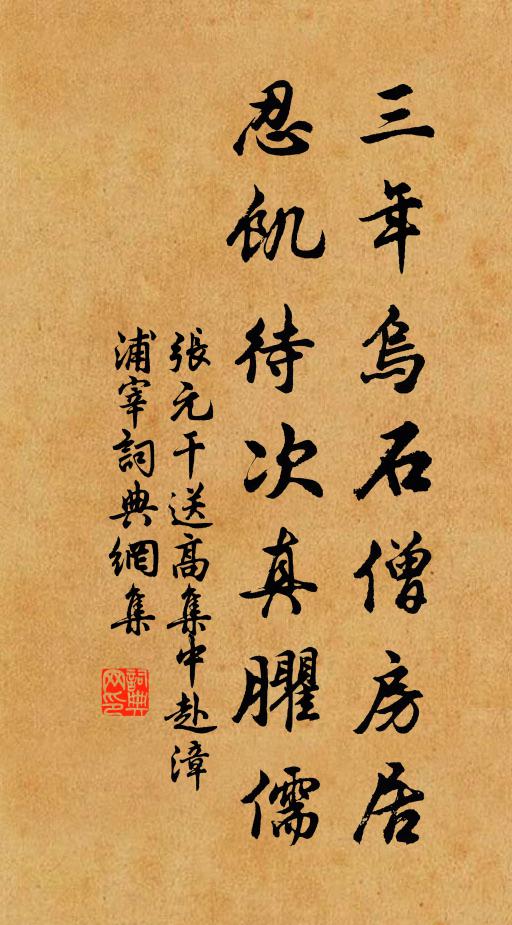 三年烏石僧房居
忍飢待次真臞儒
張元干送高集中赴漳
浦宰詞典網集
詞典網印